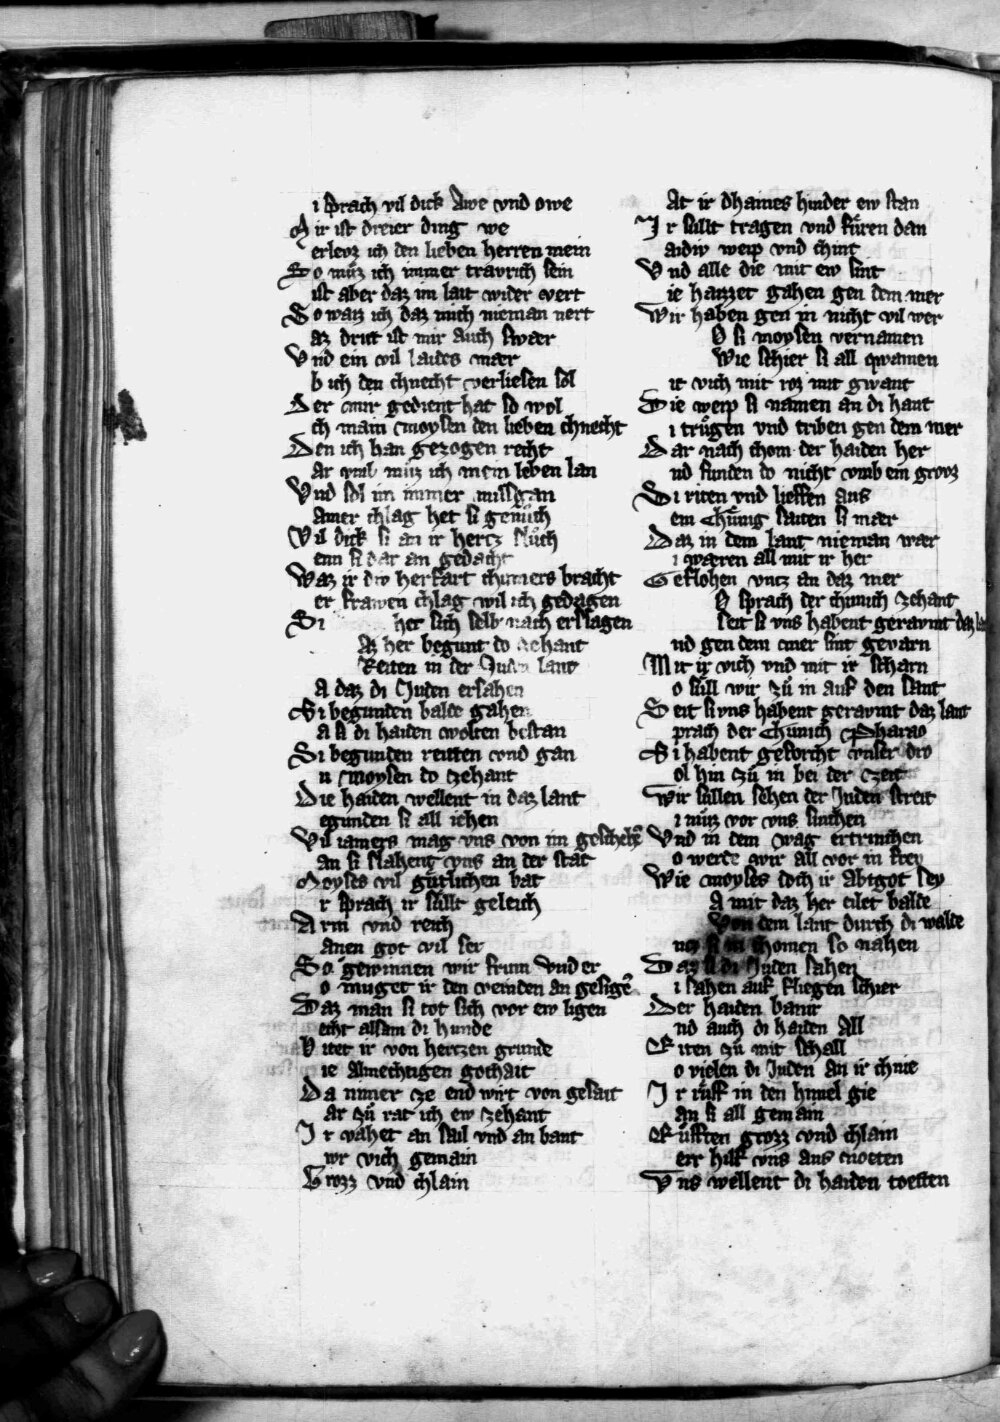 i sprach vil dick Awe vnd owe
Mir ist dreier ding we
erleoz ich den lieben herren mein
So muͤz ich immer travrich sein
ist aber daz im laut wider vert
So waiz ich daz mich nieman nert
az dritt ist mir auch swaer
Vnd ein vil laides maer
b ich den chnecht verliesen sol
Der mir gedient hat so wol
ch main moysen den lieben chnecht
Den ich han gezogen recht
ar vmb muͤz ich mein leben lan
Vnd sol im immer missgan
amer chlag het si genuͦch
Vil dick si an ir hertz sluͦch
enn si dar an gedacht
Waz ir div herfart chumers bracht
er frawen chlag wil ich gedagen
Si her sich selb nach erslagen
Az her begunt do zehant
Reiten in der Juden lant
A daz di Juden ersahen
Si begunden balde gahen
a si di haiden wolten bestan
Si begunden reutten vnd gan
u moysen do zehant
Die haiden wellent in daz lant
egunden si all iehen
Vil iamers mag vns von im geschehen̄
an si slahent vns an der stat
Moyses vil guͤtlichen bat
r sprach ir sullt geleich
Arm vnd reich
anen got vil ser
So gewinnen wir frum vnd er
o muget ir den veinden an gesigē
Daz man si tot sich vor ew ligen
echt allsam di hunde
Bitet ir von hertzen grunde
ie almechtigen gothait
Da nimer ze end wirt von gesait
ar zuͦ rat ich ew zehant
Ir vahet an sail vnd an bant
wr vich gemain
Grozz vnd chlain
At ir dhaines hinder ew stan
Ir sullt tragen vnd fuͤren dan
aidiv weip vnd chint
Vnd alle die mit ew sint
ie haizzet gahen gen dem mer
Wir haben gen in nicht vil wer
O si moysen vernamen
Wie schier si all qwamen
it vich mit roz mit gwant
Die weip si namen an di hant
i truͦgen vnd triben gen dem mer
Dar nach chom der haiden her
nd funden do nicht vmb ein grooz
Si riten vnd lieffen aus
em Chuͤnig saiten si maer
Daz in dem lant nieman waer
i waeren all mit ir her
Geflohen vntz an daz mer
O sprach der chunich zehant
seit si vns habent geravmt daz la
nd gen dem mer sint gevarn
Mit ir vich vnd mit ir scharn
o sull wir zuͦ in auf den sant
Seit si vns habent geravmt daz lant
prach der Chunich Pharao
Si habent gevorcht vnser dro
ol hin zuͦ in bei der czeit
Wir sullen sehen der Juden streit
i muͤz vor vns sinchen
Vnd in dem wag ertrinchen
o werde wir all vor in frey
Wie moyses doch ir abtgot sey
A mit daz her eilet balde
Von dem lant durch di walde
ntz si in chomen so nahen
Daz si di Juden sahen
i sahen auf fliegen schier
Der haiden banir
nd auch di haiden all
Riten zuͦ mit schall
o vielen di Juden an ir chnie
Ir ruͦff in den himel gie
an si all gemain
Ruͦfften grozz vnd chlain
err hilf vns aus noeten
Vns wellent di haiden toetten